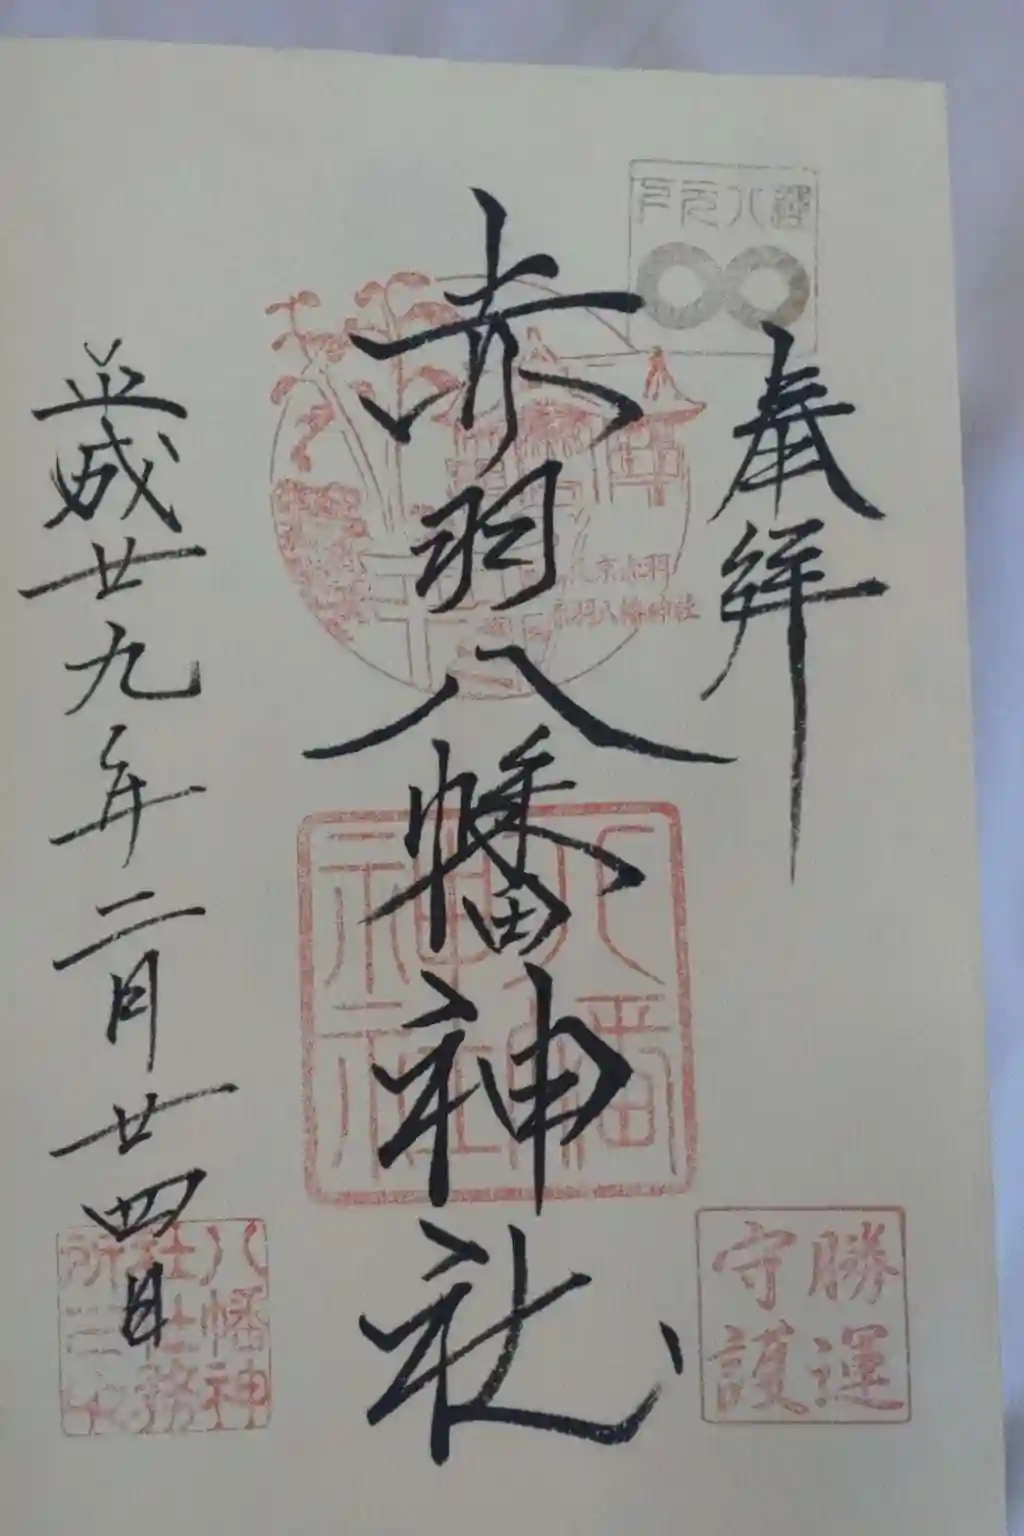 奉拝
赤羽八幡神社
平成廿九年二月廿四日
赤羽八幡神社
八幡神社
勝運
守護
八幡神
社社務
所